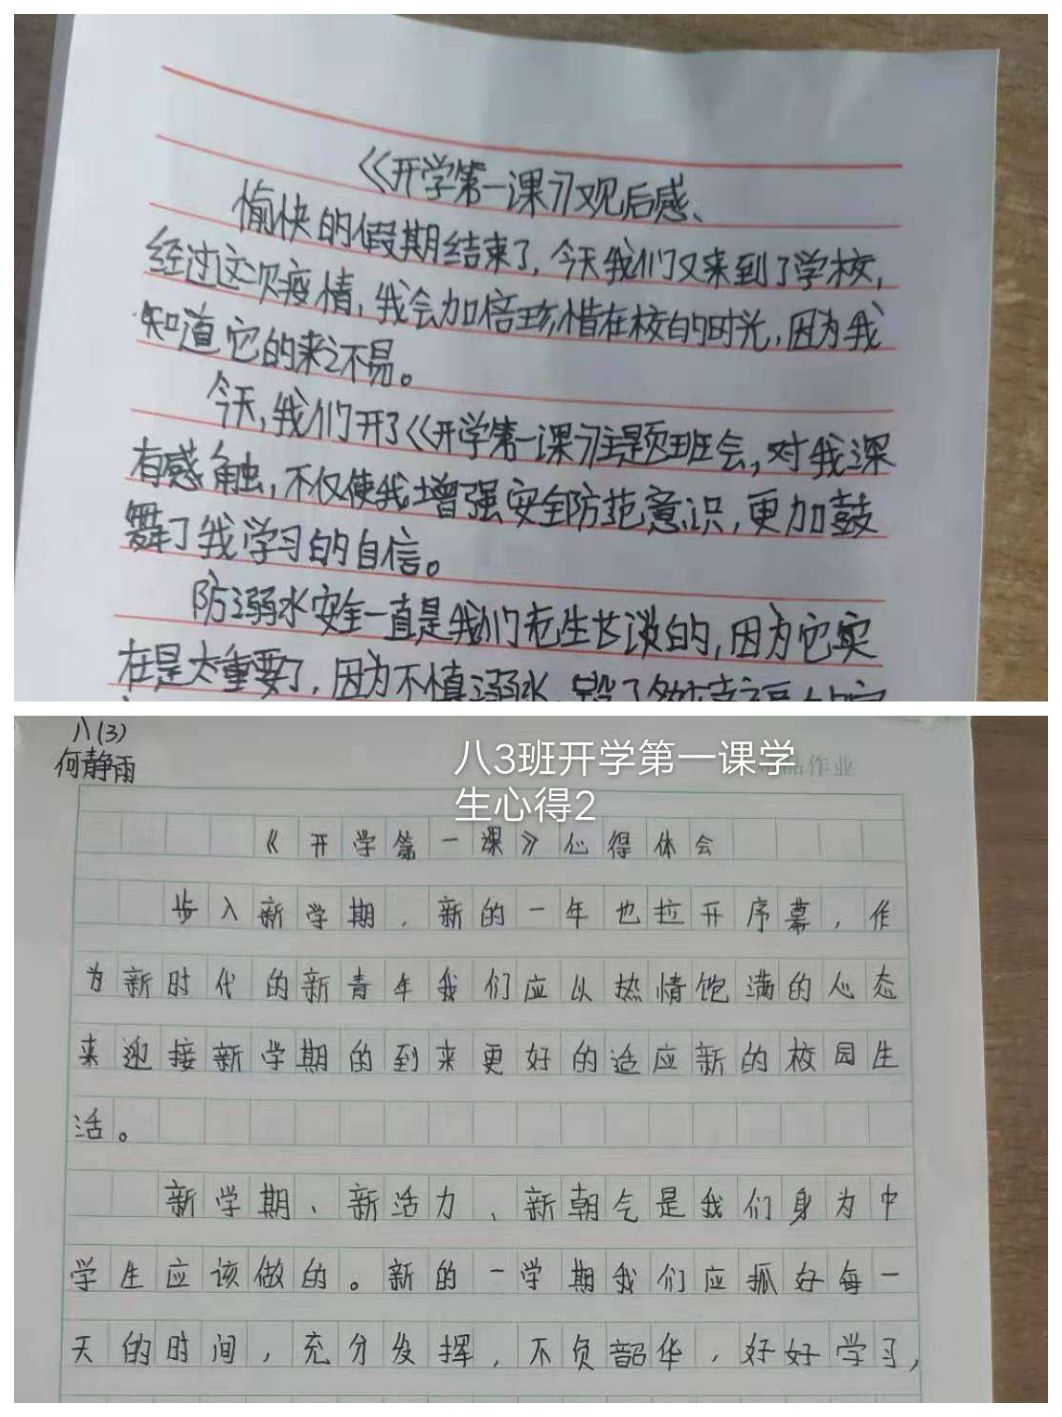 《开学第一课》观后感、
愉快的假期结束了,今天我们又来到了学校,
经过这次疫情,我会加倍珍惜在校的时光,因为我
知道它的来之不易。
今天,我们开了《开学第一课》主题班会,对我深
有感触,不仅使我增强安全防范意识,更加鼓
舞了我学习的自信。
防溺水安全一直是我们老生长谈的,因为它实
在是太重要了,因为不慎溺水
八(3)
何静雨
八3班开学第一课学
生心得2
作业
《开学第一课》心得体会
步入新学期,新的一年也拉开序幕,作
为新时代的新青年我们应以热情饱满的心态
来迎接新学期的到来更好的适应新的校园生
活。
新学期、新活力、新朝气是我们身为中
学生应该做的。新的一学期我们应抓好每一
天的时间,充分发挥,不负韶华,好好学习,